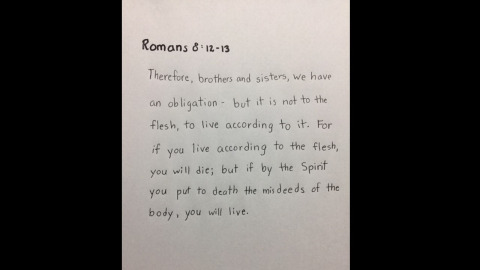 Romans 8:12-13
Therefore, brothers and sisters, we have
an obligation - but it is not to the
flesh, to live according to it. For
if you live according to the flesh,
you will die; but if by the Spirit
you put to death the misdeeds of the
body, you will live.